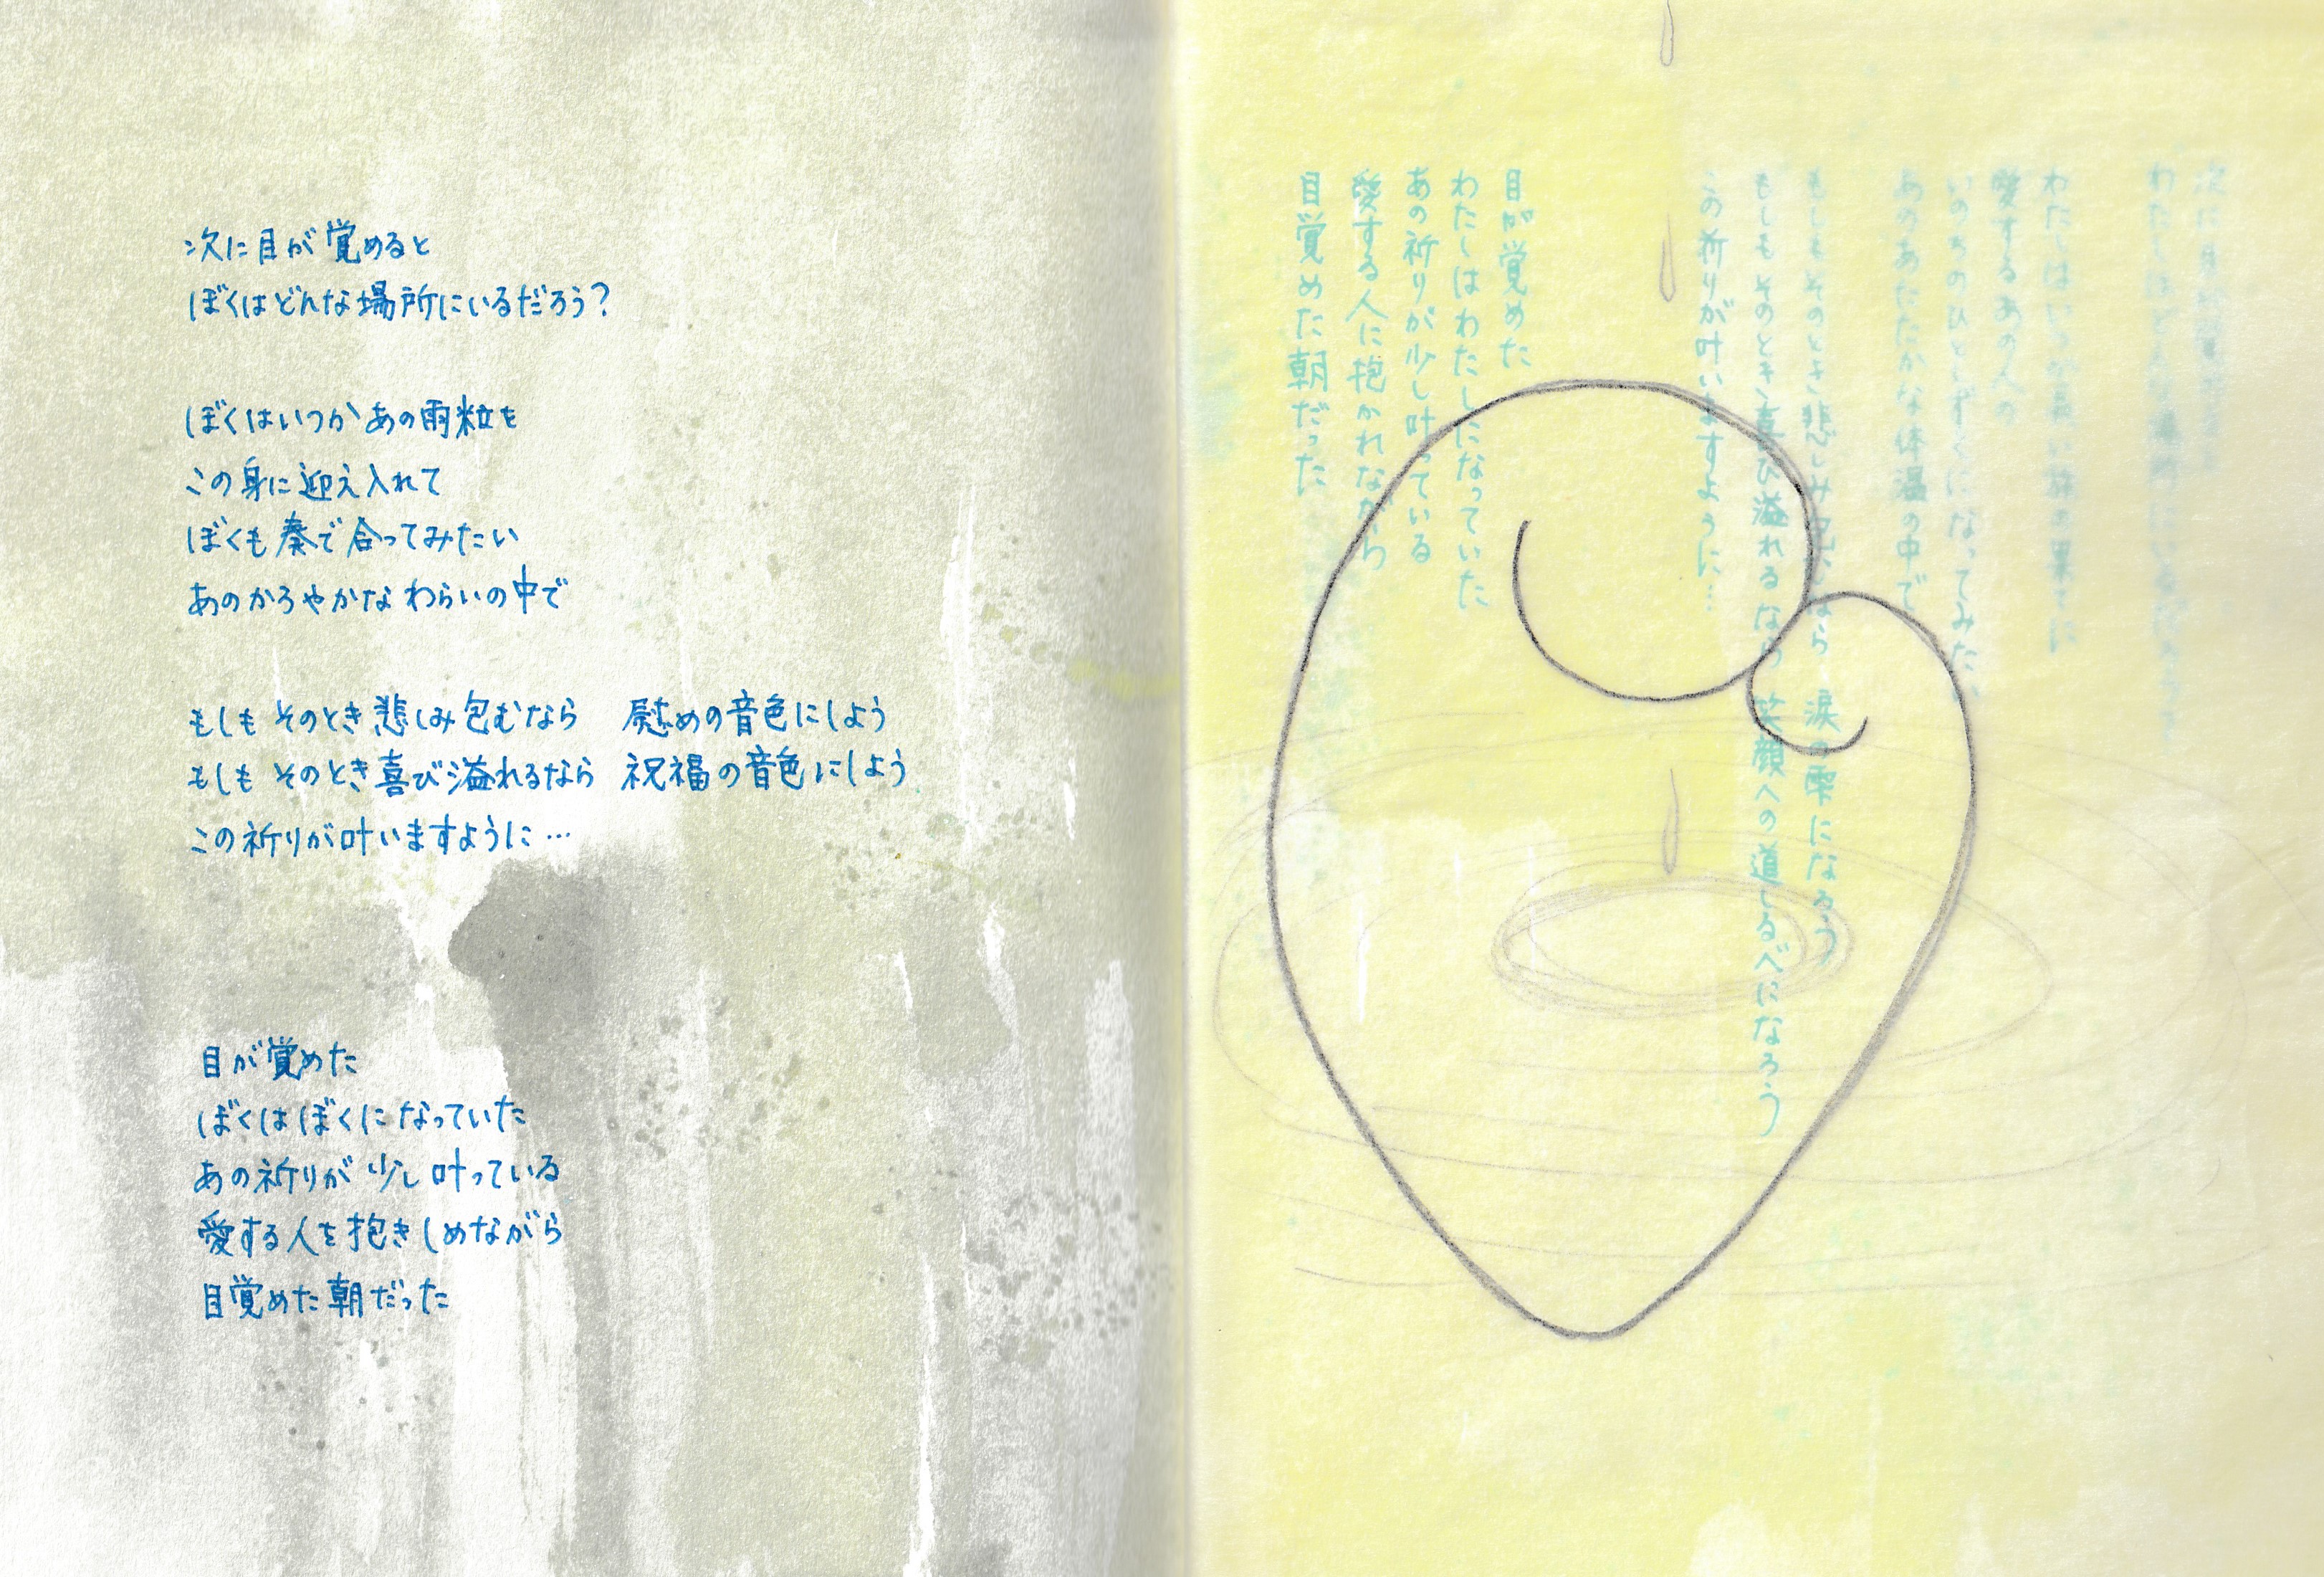 次に目が覚めると
ぼくはどんな場所にいるだろう？
ぼくはいつかあの雨粒を
この身に迎え入れて
ぼくも奏で合ってみたい
あのかろやかなわらいの中で
もしも そのとき悲しみ包むなら　慰めの音色にしよう
もしも そのとき喜び溢れるなら　祝福の音色にしよう
この祈りが叶いますように…
目が覚めた
ぼくはぼくになっていた
あの祈りが少し叶っている
愛する人を抱きしめながら
目覚めた朝だった
次に目が覚めると
わたしはどんな場所にいるだろう？
わたしはいつか長い旅の果てに
愛するあの人の
いのちのひとしずくになってみたい
あのあたたかな体温の中で
もしもそのとき悲しみ包むなら　涙の雫になろう
もしもそのとき喜び溢れるなら　笑顔への道しるべになろう
この祈りが叶いますように…
目が覚めた
わたしはわたしになっていた
あの祈りが少し叶っている
愛する人に抱かれながら
目覚めた朝だった